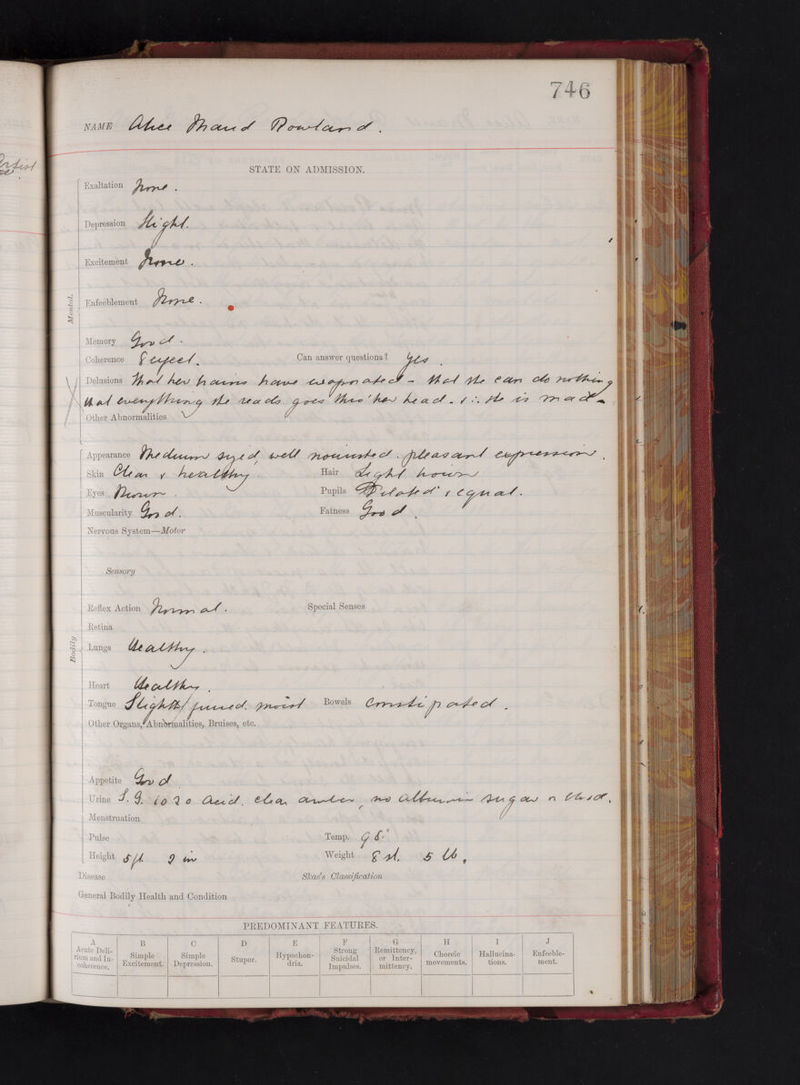 746
NAME Alice Maud Rowland.
STATE ON ADMISSION.
Exaltation None.
Depression Slight.
Excitement None.
Enfeeblement None.
Mental.
Memory Good.
Coherence Perfect. Can answer questions? Yes
Delusions That her brains have evaporated - that she can do nothing
that everything she reads goes thro' her head - & ∴ she is mad -
Other Abnormalities
Appearance Medium sized, well nourished. pleasant expression.
Skin Clear & healthy. Hair Light brown
Eyes Brown. Pupils Dilated & equal.
Muscularity Good. Fatness Good.
Nervous System—Motor
Sensory
Reflex Action Normal. Special Senses
Retina
Bodily
Lungs Healthy.
Heart Healthy.
Tongue Slightly furred moist Bowels Constipated.
Other Organs, Abnormalities, Bruises, etc.
Appetite Good
Urine S.G. 1020 acid. clear amber, no albumin sugar or blood.
Menstruation
Pulse Temp. 98°
Height 5 ft 2 in Weight 8 st. 5 lb.
Disease Skae's Classification
General Bodily Health and Condition
PREDOMINANT FEATURES.
A B C D E F G H I J
Acute Delirium and Incoherence. Simple Excitement. Simple Depression. Stupor. Hypochondria. Strong Suicidal Impulses. Remittency, or Intermittency. Choreic movements. Hallucinations. Enfeeblement.